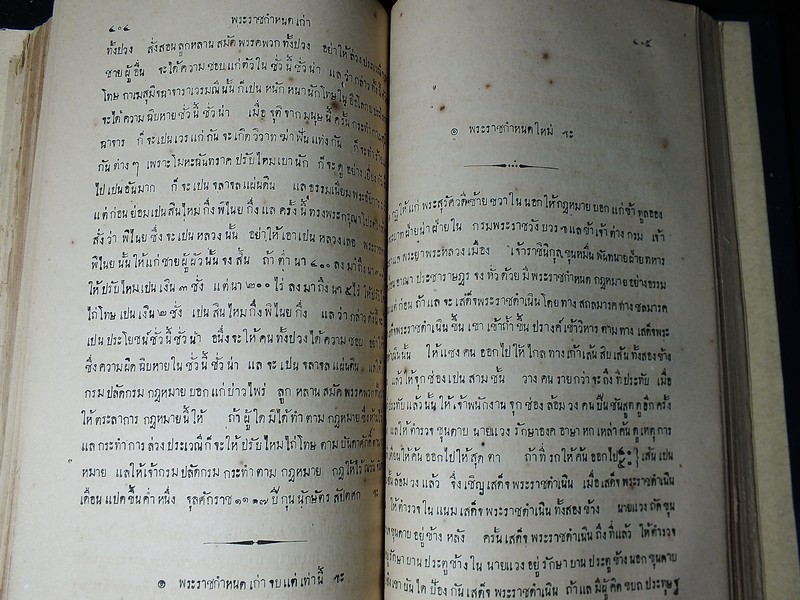 ๔๐๔ พระราชกำหนดเก่า
ทั้งปวง สั่งสอนลูกหลาน สมัคพรรคพวก ทั้งปวง อย่าให้ล่วงประเวณี
ชายผู้อื่น จะได้ความชอบแก่ตัวใน ชั่วนี้ชั่วน่า แล ว่ากล่าว
โทษกาเมสุมิจฉาจาราเวรมณีนั้น ก็เปน หนักหนานักโทษใน
จะได้ความฉิบหายชั่วนี้ชั่วน่า เมื่อจุติจากมนุษนี้ครั้นกระทำ
ฉาจาร ก็จะเปนเวรแก่กัน จะเกิดวิวาทฆ่าฟันแทงกัน ก็จะทำ
กันต่างๆ เพราะโมหะฉันทราค ปรับไหมเบานัก ก็จะดูอย่างเยี่ยง
ไปเปนอันมาก ก็จะเปนจลาจลแผ่นดิน แลธรรมเนียม
แต่ก่อนย่อมเปนสินไหมกึ่งพิไนยกึ่ง แล ครั้งนี้ทรงพระกรุณาโปรด
สั่งว่า พิไนยซึ่งจะเปนหลวงนั้น อย่าให้เอาเปนหลวงเลย
พิไนยนั้นให้แก่ชายผู้ผัวนั้นจงสิ้น ถ้า ต่ำนา ๔๐๐ ลงมาถึงนา
ให้ปรับไหมเปนเงิน ๓ ชั่ง แต่นา ๒๐๐ ไร่ ลงมาถึงนา ๕ ไร่ ให้ปรับ
ไถ่โทษเปนเงิน ๒ ชั่ง เปนสินไหมกึ่งพิไนยกึ่ง แล ว่ากล่าวดังนี้
เปนประโยชน์ชั่วนี้ชั่วน่า อนึ่งจะให้คนทั้งปวงได้ความชอบ อย่าให้
ซึ่งความผิดฉิบหายในชั่วนี้ชั่วน่า แล จะเปนจลาจลแผ่นดิน แลให้
กรมปลัดกรมกฎหมายบอกแก่บ่าวไพร่ ลูกหลานสมัคพรรคพวก
ให้ตระลาการกฎหมายนี้ให้ ถ้าผู้ใดมิได้ทำตามกฎหมายซึ่งห้าม
แลกระทำการล่วงประเวณีก็จะให้ปรับไหมไถ่โทษตามบันดาศักดิ์
หมาย แลให้เจ้ากรมปลัดกรมกระทำตามกฎหมาย กฎให้ไว้ณวัน
เดือนแปดขึ้นค่ำหนึ่ง จุลศักราช ๑๑๑๗ ปีกุนนักษัตรสัปตศก ๚ะ
๏ พระราชกำหนดเก่าจบแต่เท่านี้ ๚ะ
๔๐๕
๏ พระราชกำหนดใหม่ ๚ะ
กฎให้แก่พระสุรัศวดีซ้ายขวาในนอกให้กฎหมายบอกแก่ข้าทูลออง
บาทฝ่ายน่าฝ่ายใน กรมพระราชวังบวรฯแลข้าเจ้าต่างกรม เจ้า
แลพระยาพระหลวงเมือง เจ้าราชินิกุลขุนหมื่นพันทนายฝ่ายทหาร
อาณาประชาราษฎรจงทั่ว ด้วยมีพระราชกำหนดกฎหมายอย่างธรรม
แต่ก่อน ถ้าแลจะเสด็จพระราชดำเนินโดยทางสถลมารคทางชลมารค
เสด็จพระราชดำเนินขึ้นเขาเข้าถ้ำขึ้นปรางค์เข้าวิหารตามทางเสด็จพระ
ดำเนินนั้น ให้แซงคนออกไปให้ไกลทางเก้าเส้นสิบเส้นทั้งสองข้าง
แล้วให้จุกช่องเปนสามชั้น วางคนรายกว่าจะถึงที่ประทับ เมื่อ
ประทับแล้วนั้นให้เจ้าพนักงานจุกช่องล้อมวงคนปืนชันสูตดูอีกครั้ง
แลให้ตำรวจขุนดาบ นายแวงรักษาองคอาษาหกเหล่าค้นดูเหตุการ
คนให้ค้นออกไปให้สุดตา ถ้าที่รกให้ค้นออกไป เส้นเปน
ล้อมวงแล้ว จึ่งเชิญเสด็จพระราชดำเนิน เมื่อเสด็จพระราชดำเนิน
ให้ตำรวจในแนมเสด็จพระราชดำเนินทั้งสองข้าง นายแวงถัดขุน
ขุนดาบอยู่ข้างหลัง ครั้นเสด็จพระราชดำเนินถึงที่แล้ว ให้ตำรวจ
รักษาบานประตูข้างใน นายแวงอยู่รักษาบานประตูข้างนอกขุนดาบ
เชิงเขาบันไดป้องกันเสด็จพระราชดำเนิน ถ้าแลมีผู้คิดขบถประทุษฐ